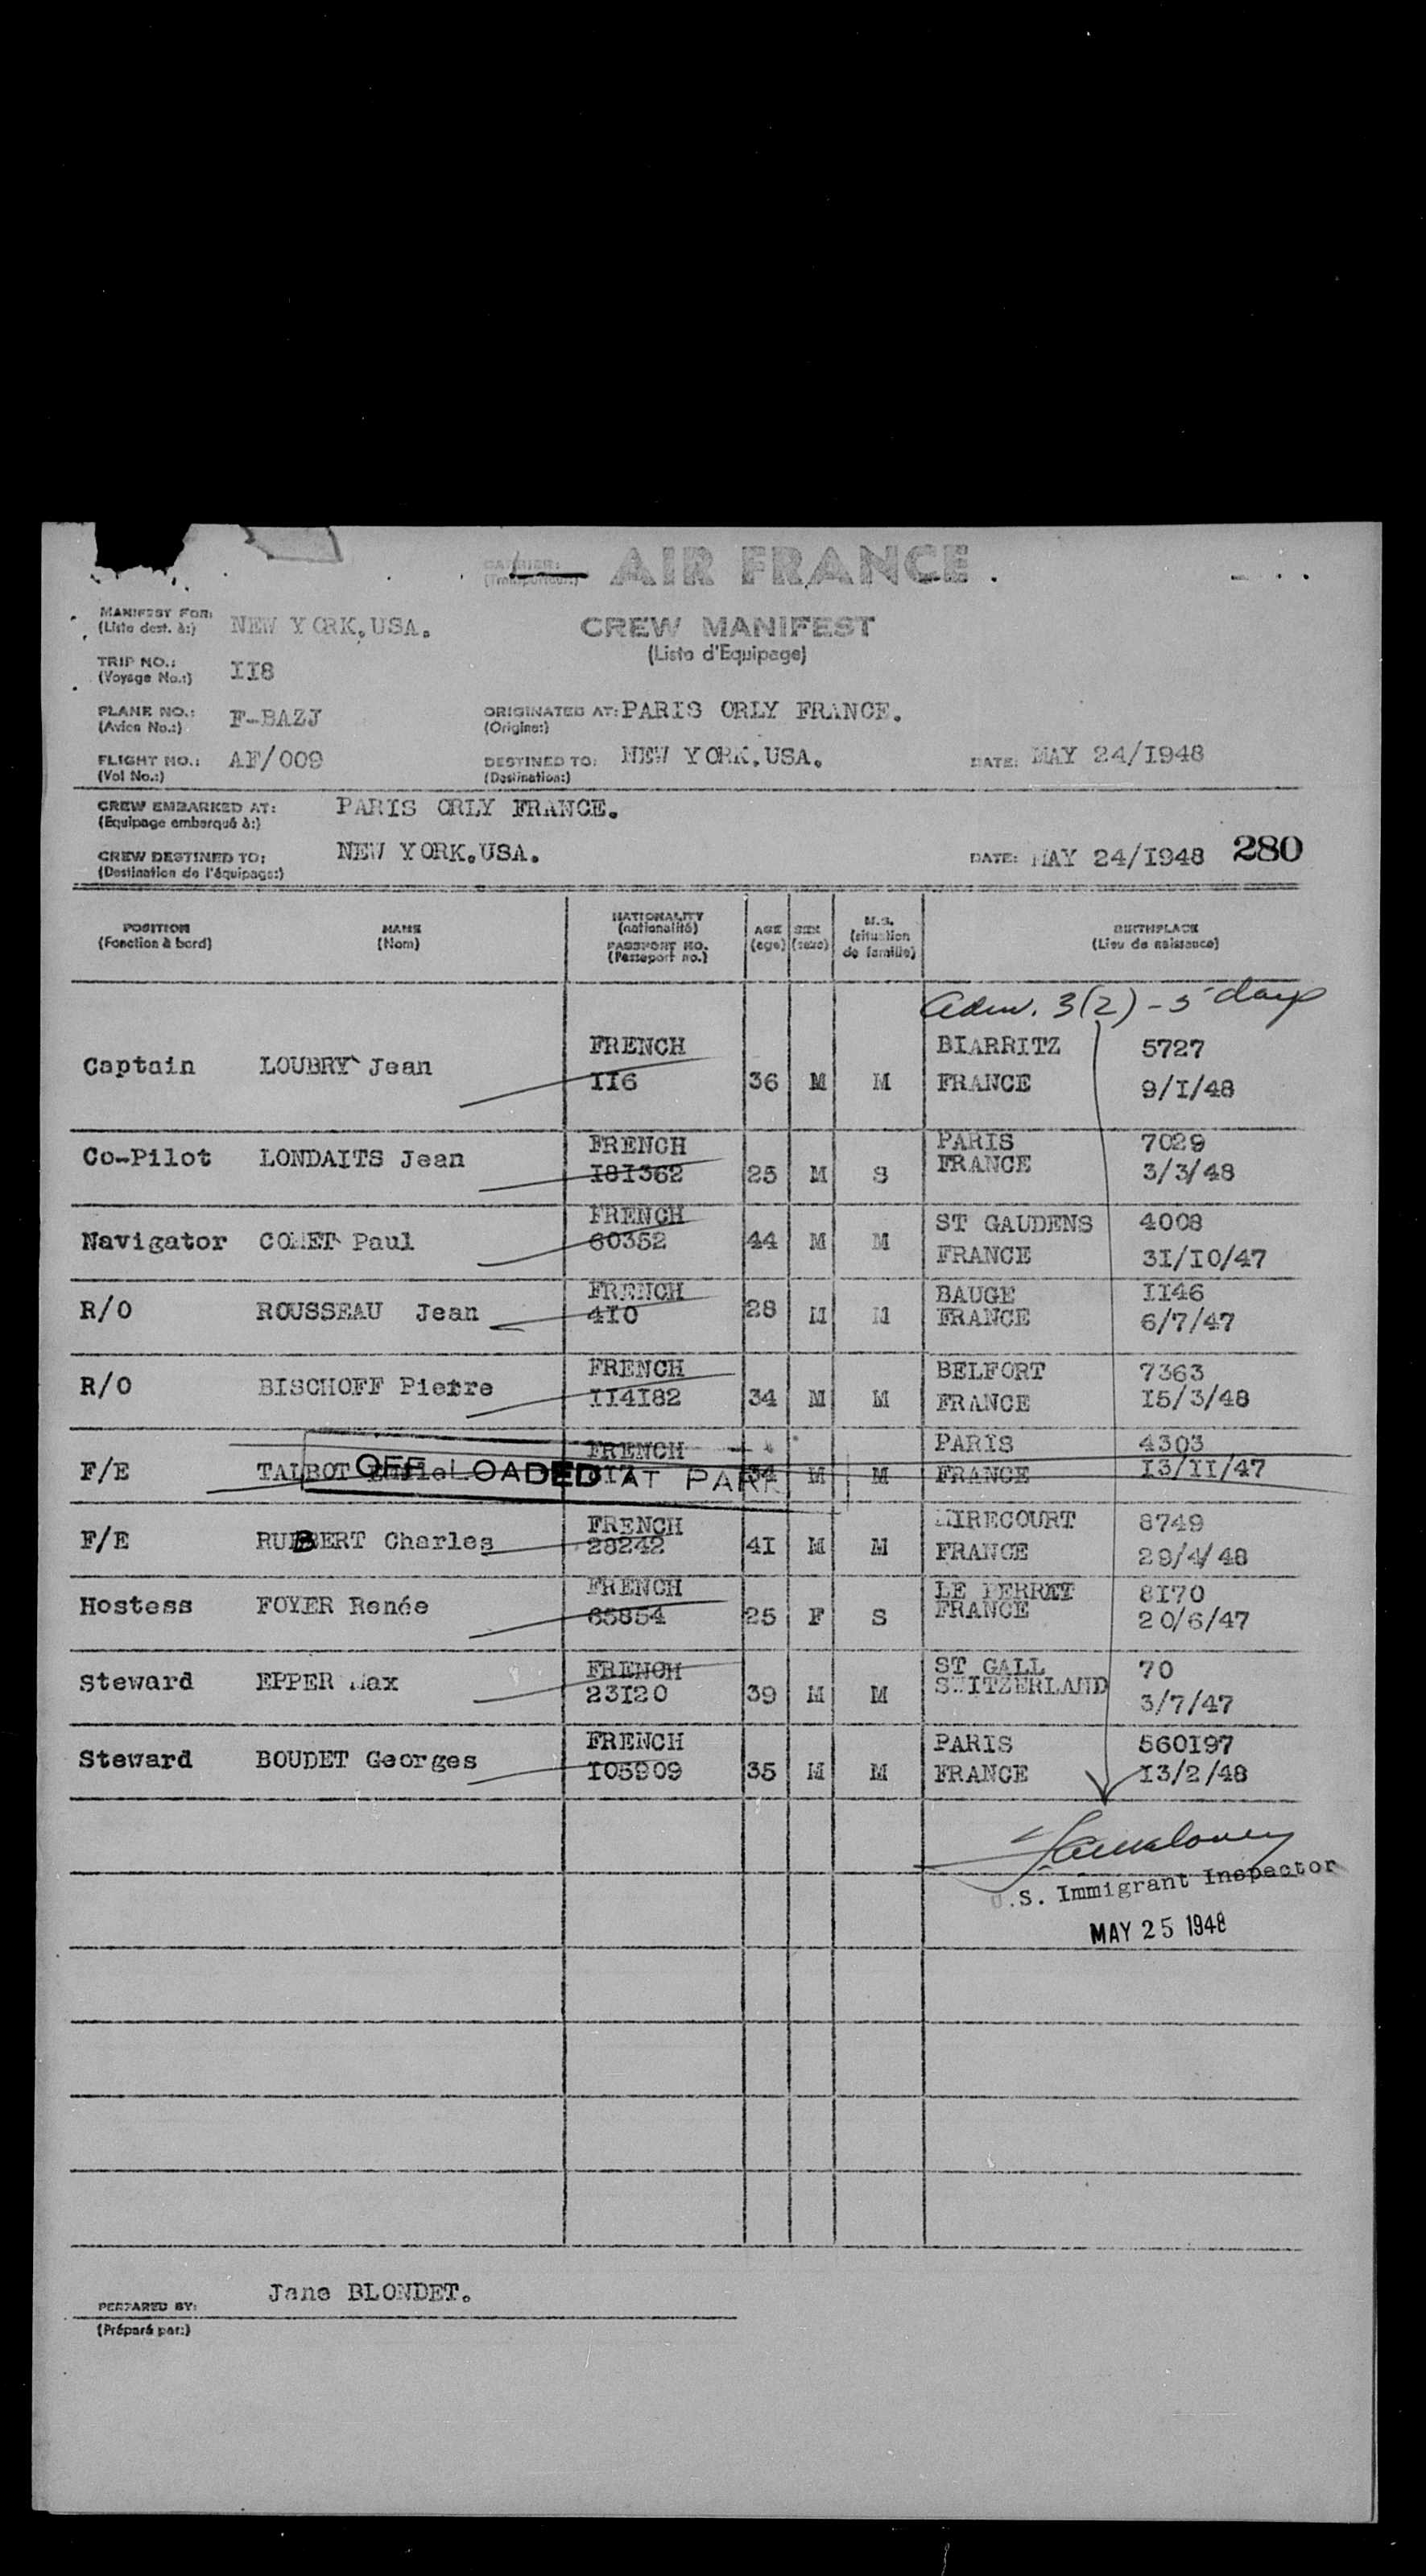 CARRIER: AIR FRANCE
(Transporteur:)
MANIFEST FOR: NEW YORK, USA.
(Liste dest. à:)
CREW MANIFEST
(Liste d'Equipage)
TRIP NO.: II8
(Voyage No.:)
PLANE NO.: F-BAZJ
(Avion No.:)
ORIGINATED AT: PARIS ORLY FRANCE.
(Origine:)
FLIGHT NO.: AF/009
(Vol No.:)
DESTINED TO: NEW YORK, USA.
(Destination:)
DATE: MAY 24/I948
CREW EMBARKED AT: PARIS ORLY FRANCE.
(Equipage embarqué à:)
CREW DESTINED TO: NEW YORK. USA.
(Destination de l'équipage:)
DATE: MAY 24/I948 280
POSITION
(Fonction à bord)
NAME
(Nom)
NATIONALITY
(nationalité)
PASSPORT NO.
(Passeport no.)
AGE
(age)
SEX
(sexe)
M.S.
(situation
de famille)
BIRTHPLACE
(Lieu de naissance)
Adm. 3(2) - 5 days
FRENCH BIARRITZ 5727
Captain LOUBRY Jean
II6 36 M M FRANCE 9/I/48
FRENCH PARIS 7029
Co-Pilot LONDAITS Jean
I8I362 25 M S FRANCE 3/3/48
FRENCH ST GAUDENS 4008
Navigator COMET Paul 60352 44 M M
FRANCE 3I/I0/47
FRENCH BAUGE II46
R/O ROUSSEAU Jean 4I0 28 M M FRANCE 6/7/47
FRENCH BELFORT 7363
R/O BISCHOFF Pierre
II4I82 34 M M FRANCE I5/3/48
FRENCH PARIS 4303
F/E TALBOT 34 M M FRANCE I3/II/47
OFF LOADED AT PARIS
FRENCH MIRECOURT 8749
F/E RUBBERT Charles 28242 4I M M FRANCE 29/4/48
FRENCH LE PERRET 8I70
Hostess FOYER Renée 65854 25 F S FRANCE 20/6/47
FRENCH ST GALL 70
Steward EPPER Max 23I20 39 M M SWITZERLAND 3/7/47
FRENCH PARIS 560I97
Steward BOUDET Georges I05909 35 M M FRANCE I3/2/48
U.S. Immigrant Inspector
MAY 25 1948
Jane BLONDET.
PREPARED BY:
(Préparé par:)